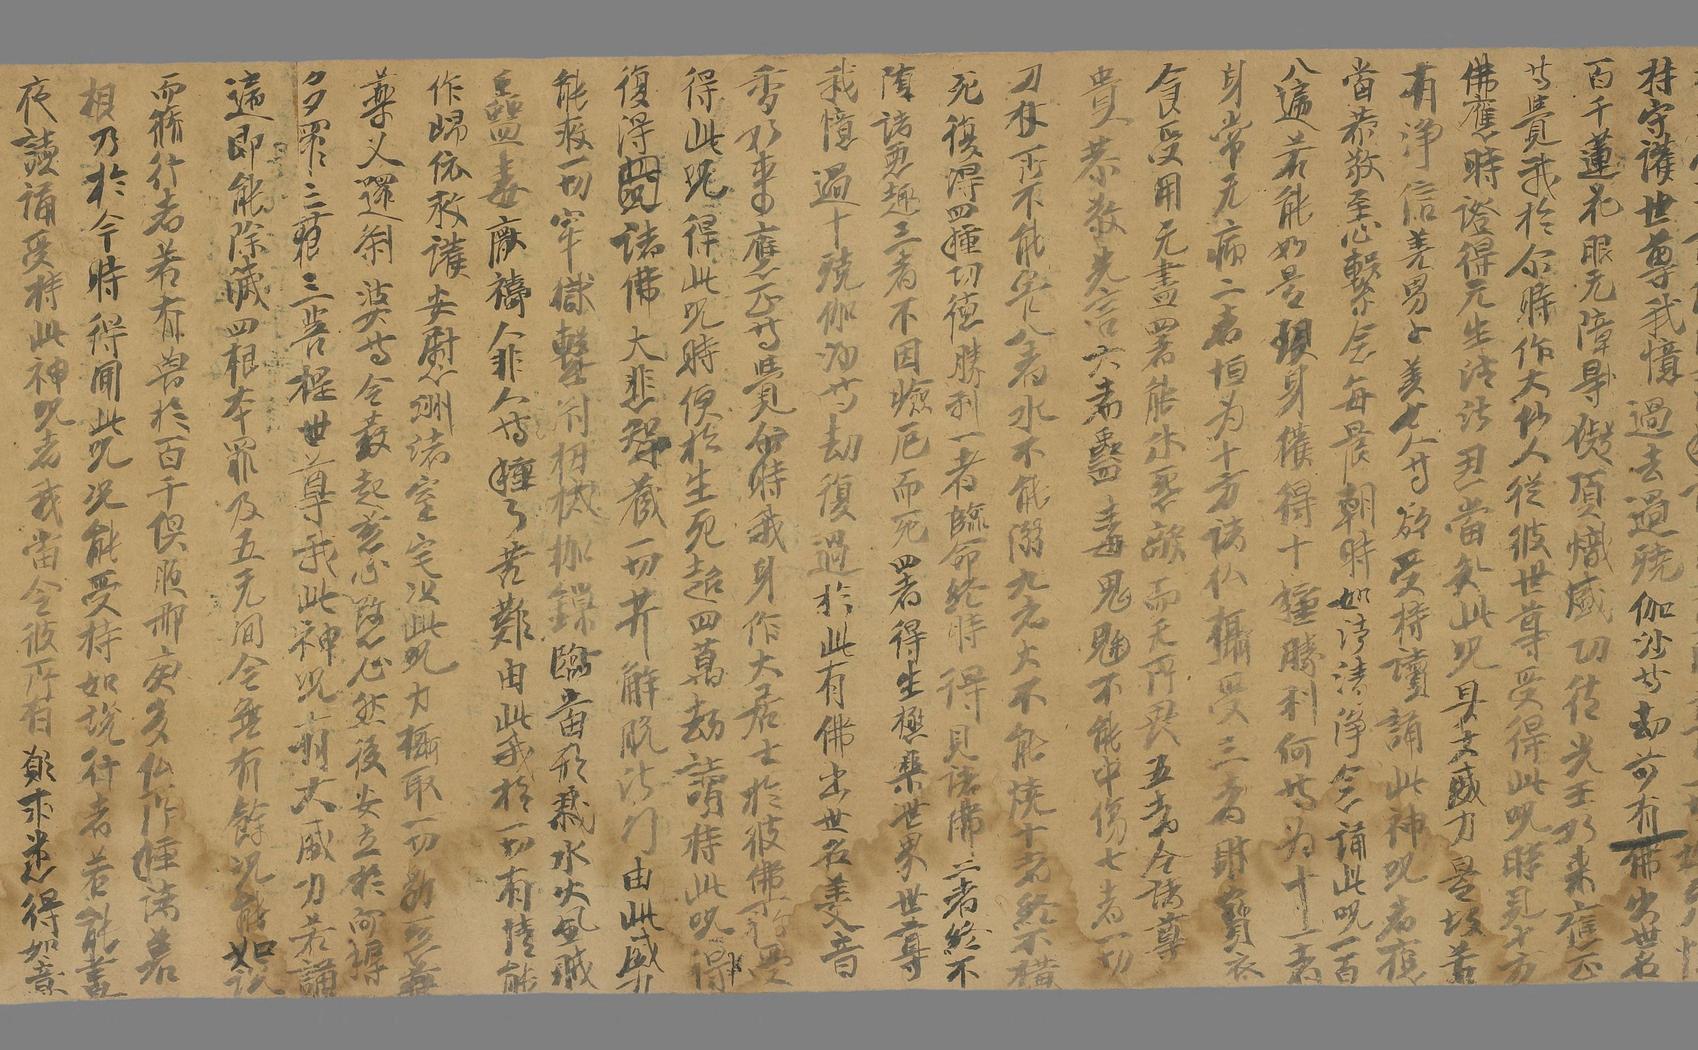 持守護世尊我憶過去過殑伽沙等劫前有佛出世名
百千蓮花眼无障㝵頂熾盛功德光王如來應正
等覺我於尔時作大仙人從彼世尊受得此咒時見十方
佛應時證得无生法忍當知此咒具大威力是故若
有淨信善男子善女人等欲受持讀誦此神咒者應
當恭敬至心繫念每晨朝時如法清淨念誦此咒一百
八遍若能如是現身獲得十種勝利何等為十一者
身常无病二者恒为十方諸仏攝受三者財寶衣
食受用无盡四者能怨敵而无所畏五者令諸尊
貴恭敬先言六者蠱毒鬼魅不能中傷七者一切
刀杖所不能害八者水不能溺九者火不能燒十者終不橫
死復得四種功德勝利一者臨命終時得見諸佛二者終不
墮諸惡趣三者不因險厄而死四者得生極樂世界世尊
我憶過十殑伽沙等劫復過於此有佛出世名美音
香如來應正等覺尔時我身作大居士於彼佛所受
得此咒得此咒時便於生死超四萬劫讀持此咒得
復得諸佛大悲智藏一切菩薩解脫法門由此威力
能救一切牢獄繫閉杻械枷鎖臨當形戮水火風賊
蠱毒厭禱人非人等種種苦難由此我於一切有情能
作歸依救護安慰洲渚室宅以此咒力攝取一切勃惡藥
叉邏剎娑等令發起慈心愍心然後安立於阿耨
多羅三藐三菩提世尊我此神咒有大威力若誦
遍即能除滅四根本罪及五无間令無有餘況能如說
而修行者若有曾於百千俱胝那庾多仏所種諸善
根乃於今時得聞此咒況能受持如說行者若能晝
夜讀誦受持此神咒者我當令彼所有願求悉得如意